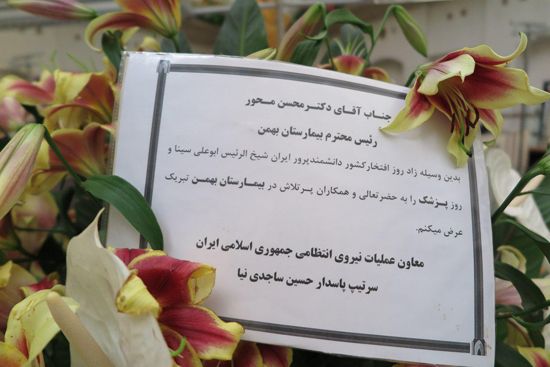 جناب آقای دکتر محسن محور
رئیس محترم بیمارستان بهمن
بدین وسیله زاد روز افتخار کشور دانشمندپرور ایران شیخ الرئیس ابوعلی سینا و
روز پزشک را به حضرتعالی و همکاران پرتلاش در بیمارستان بهمن تبریک
عرض میکنم.
معاون عملیات نیروی انتظامی جمهوری اسلامی ایران
سرتیپ پاسدار حسین ساجدی نیا